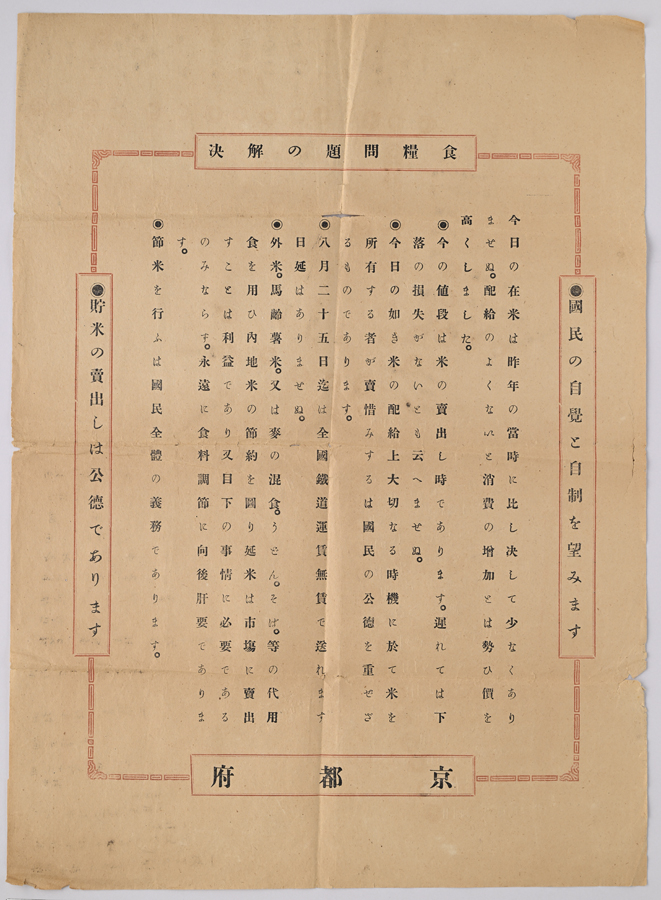 食糧問題の解決
●國民の自覺と自制を望みます
今日の在米は昨年の當時に比し決して少なくあり
ませぬ。配給のよくないと消費の增加とは勢ひ價を
高くしました。
◉今の値段は米の賣出し時であります。遲れては下
落の損失がないとも云へませぬ。
◉今日の如き米の配給上大切なる時機に於て米を
所有する者が賣惜みするは國民の公德を重せざ
るものであります。
◉八月二十五日迄は全國鐵道運賃無賃で送れます
日延はありませぬ。
◉外米。馬齡薯米。又は麥の混食。うどん。そば。等の代用
食を用ひ內地米の節約を圖り延米は市場に賣出
すことは利益であり又目下の事情に必要である
のみならす。永遠に食料調節に向後肝要でありま
す。
◉節米を行ふは國民全體の義務であります。
●貯米の賣出しは公德であります
京都府